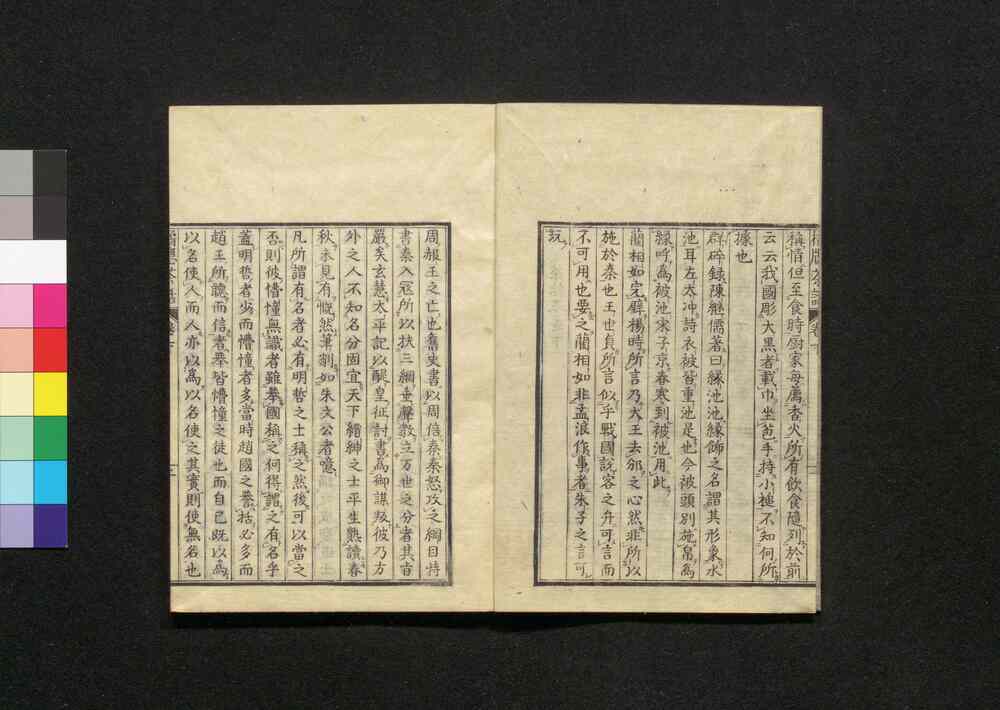 橘牕茶話 卷下
稱情但至食時厨家每薦香火所有飲食隨列於前
云云我國彫大黒者載巾坐芭手持小槌不知何所
據也
群碎録陳繼儒著曰緣池池緣飾之名謂其形象水
池耳左太冲詩衣被皆重池是也今被頭別施帛爲
緣呼爲被池宋子京春寒到被池用此
藺相如完璧楊時所言乃大王去邠之心然非所以
施於秦也王世貞所言似乎戰國説客之舟可言而
不可用也要之藺相如非孟浪作事者朱子之言可
玩
周赧王之亡也舊史書以周倍秦秦怒攻之綱目特
書秦入寇所以扶三綱垂聲教立万世之分者其旨
嚴矣玄慧太平記以醍皇征討書爲御謀叛彼乃方
外之人不知名分固宜天下縉紳之士平生熟讀春
秋未見有慨然筆削如朱文公者噫
凡所謂有名者必有明哲之士稱之然後可以當之
否則彼懵憧無識者雖擧國稱之何得謂之有名乎
蓋明哲者少而懵憧者多當時趙國之譽括必多而
趙王所聽而信者擧皆懵憧之徒也而自己既以爲
以名使人而人亦以爲以名使之其實則使無名也
橘牕茶話 卷下